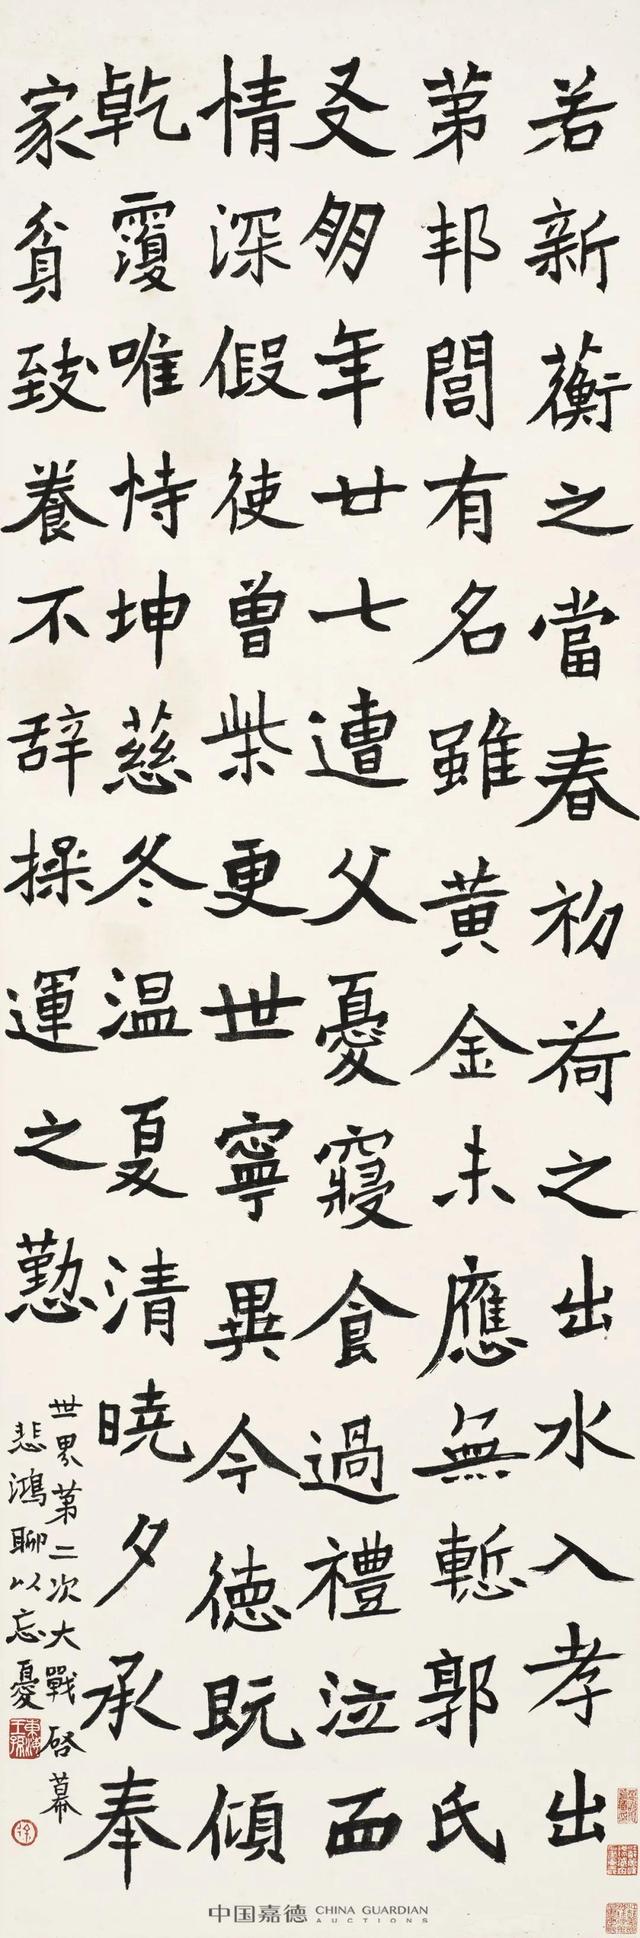 若新蘅之當春初荷之出水入孝出
苐邦閭有名雖黄金未應無慙郭氏
友朋年廿七遭父憂寢食過禮泣血
情深假使曾柴更世寧異今德既傾
乾覆唯恃坤慈冬温夏清曉夕承奉
家貧致養不辞操運之懃
世界苐二次大戰啓幕
悲鴻聊以忘憂
東海王孫
徐
中国嘉德 CHINA GUARDIAN
AUCTIONS